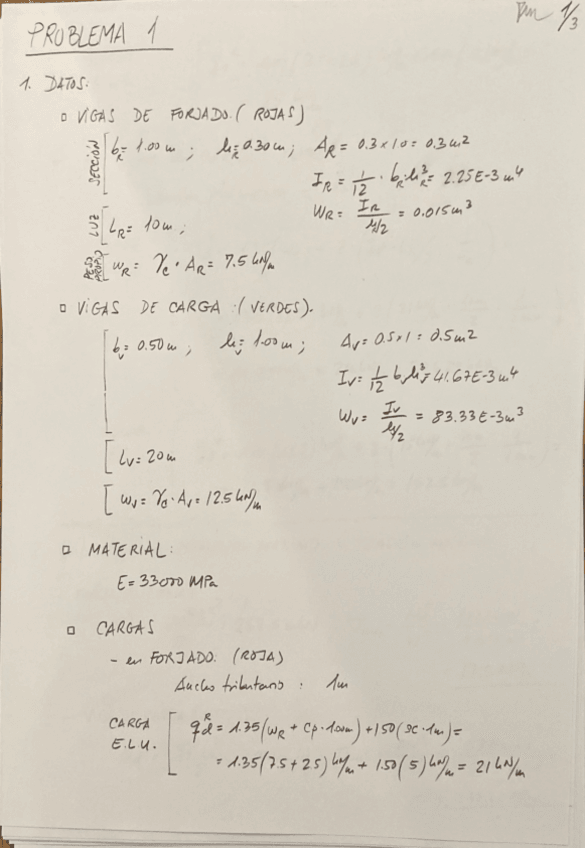 1/3
PROBLEMA 1
1. DATOS:
▫ VIGAS DE FORJADO. (ROJAS)
SECCIÓN [ b_R = 1.00 m ; h_R = 0.30 m ; A_R = 0.3 x 1.0 = 0.3 m²
I_R = 1/12 · b_R · h_R³ = 2.25E-3 m⁴
W_R = I_R / (h/2) = 0.015 m³
LUZ [ L_R = 10 m ;
PESO PROPIO [ w_R = γ_c · A_R = 7.5 kN/m
▫ VIGAS DE CARGA : (VERDES).
[ b_v = 0.50 m ; h_v = 1.00 m ; A_v = 0.5 x 1 = 0.5 m²
I_v = 1/12 b_v h_v³ = 41.67E-3 m⁴
W_v = I_v / (h/2) = 83.33E-3 m³
[ L_v = 20 m
[ w_v = γ_c · A_v = 12.5 kN/m
▫ MATERIAL:
E = 33000 MPa
▫ CARGAS
- en FORJADO: (ROJA)
Ancho tributario : 1m
CARGA E.L.U. [ q_d^R = 1.35 (w_R + cp · 1.00m) + 1.50 (sc · 1m) =
= 1.35 (7.5 + 2.5) kN/m + 1.50 (5) kN/m = 21 kN/m